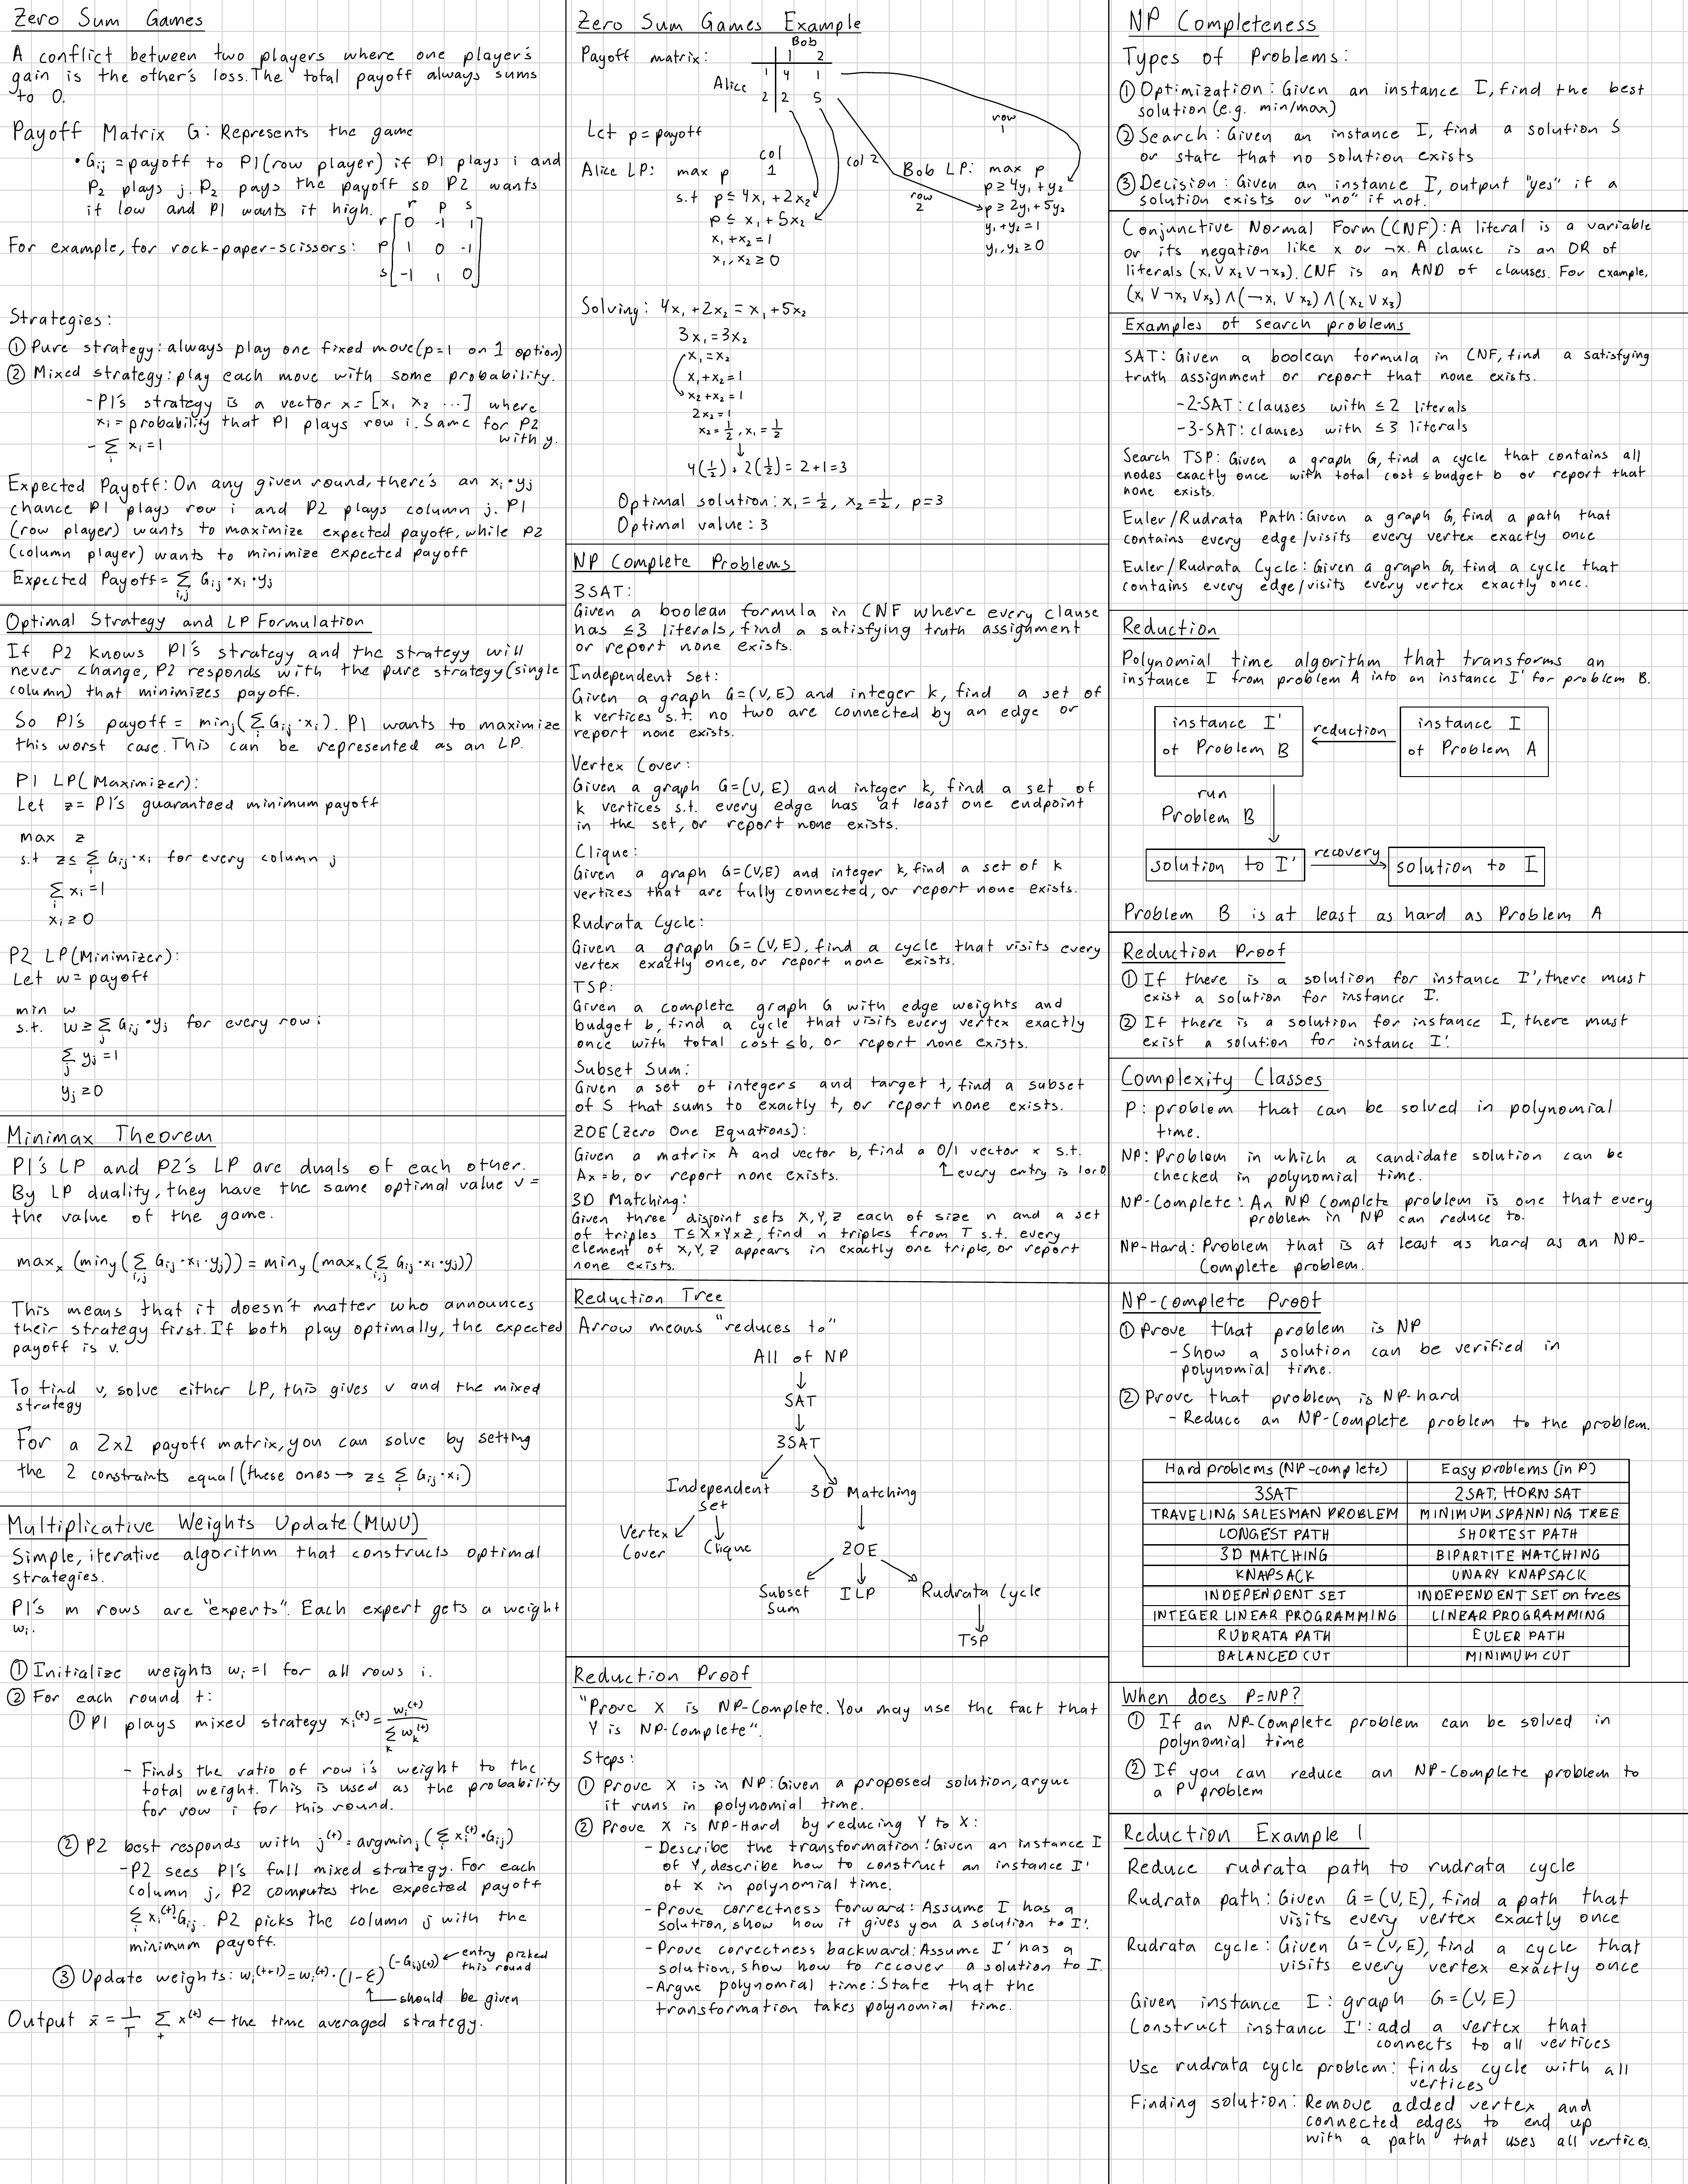 Zero Sum Games
A conflict between two players where one player's
gain is the other's loss. The total payoff always sums
to 0.
Payoff Matrix G: Represents the game
• Gij = payoff to P1 (row player) if P1 plays i and
P2 plays j. P2 pays the payoff so P2 wants
it low and P1 wants it high.
r p s
r 0 -1 1
For example, for rock-paper-scissors: p 1 0 -1
s -1 1 0
Strategies:
① Pure strategy: always play one fixed move (p=1 on 1 option)
② Mixed strategy: play each move with some probability.
- P1's strategy is a vector x = [x₁ x₂ ...] where
xi = probability that P1 plays row i. Same for P2
with y.
- Σi xi = 1
Expected Payoff: On any given round, there's an xi·yj
chance P1 plays row i and P2 plays column j. P1
(row player) wants to maximize expected payoff, while P2
(column player) wants to minimize expected payoff
Expected Payoff = Σi,j Gij·xi·yj
Optimal Strategy and LP Formulation
If P2 knows P1's strategy and the strategy will
never change, P2 responds with the pure strategy (single
column) that minimizes payoff.
So P1's payoff = minj(Σi Gij·xi). P1 wants to maximize
this worst case. This can be represented as an LP.
P1 LP (Maximizer):
Let z = P1's guaranteed minimum payoff
max z
s.t z ≤ Σi Gij·xi for every column j
Σi xi = 1
xi ≥ 0
P2 LP (Minimizer):
Let w = payoff
min w
s.t. w ≥ Σj Gij·yj for every row i
Σj yj = 1
yj ≥ 0
Minimax Theorem
P1's LP and P2's LP are duals of each other.
By LP duality, they have the same optimal value v =
the value of the game.
maxx (miny(Σi,j Gij·xi·yj)) = miny (maxx(Σi,j Gij·xi·yj))
This means that it doesn't matter who announces
their strategy first. If both play optimally, the expected
payoff is v.
To find v, solve either LP, this gives v and the mixed
strategy
For a 2x2 payoff matrix, you can solve by setting
the 2 constraints equal (these ones → z ≤ Σi Gij·xi)
Multiplicative Weights Update (MWU)
Simple, iterative algorithm that constructs optimal
strategies.
P1's m rows are "experts". Each expert gets a weight
wi.
① Initialize weights wi = 1 for all rows i.
② For each round t:
① P1 plays mixed strategy xi^(t) = wi^(t) / Σk wk^(t)
- Finds the ratio of row i's weight to the
total weight. This is used as the probability
for row i for this round.
② P2 best responds with j^(t) = argminj (Σi xi^(t)·Gij)
- P2 sees P1's full mixed strategy. For each
column j, P2 computes the expected payoff
Σi xi^(t)·Gij. P2 picks the column j with the
minimum payoff.
③ Update weights: wi^(t+1) = wi^(t)·(1-ε)^(-Gij(t)) ← entry picked
this round
↑ should be given
Output x̄ = 1/T Σt x^(t) ← the time averaged strategy.
Zero Sum Games Example
Bob
Payoff matrix: 1 2
1 4 1
Alice
2 2 5
Let p = payoff
Alice LP: max p
col 1
s.t p ≤ 4x₁ + 2x₂
p ≤ x₁ + 5x₂
x₁ + x₂ = 1
x₁, x₂ ≥ 0
col 2
row 1
row 2
Bob LP: max p
p ≥ 4y₁ + y₂
p ≥ 2y₁ + 5y₂
y₁ + y₂ = 1
y₁, y₂ ≥ 0
Solving: 4x₁ + 2x₂ = x₁ + 5x₂
3x₁ = 3x₂
x₁ = x₂
x₁ + x₂ = 1
x₂ + x₂ = 1
2x₂ = 1
x₂ = 1/2, x₁ = 1/2
↓
4(1/2) + 2(1/2) = 2+1 = 3
Optimal solution: x₁ = 1/2, x₂ = 1/2, p = 3
Optimal value: 3
NP Complete Problems
3SAT:
Given a boolean formula in CNF where every clause
has ≤3 literals, find a satisfying truth assignment
or report none exists.
Independent Set:
Given a graph G=(V,E) and integer k, find a set of
k vertices s.t. no two are connected by an edge or
report none exists.
Vertex Cover:
Given a graph G=(V,E) and integer k, find a set of
k vertices s.t. every edge has at least one endpoint
in the set, or report none exists.
Clique:
Given a graph G=(V,E) and integer k, find a set of k
vertices that are fully connected, or report none exists.
Rudrata Cycle:
Given a graph G=(V,E), find a cycle that visits every
vertex exactly once, or report none exists.
TSP:
Given a complete graph G with edge weights and
budget b, find a cycle that visits every vertex exactly
once with total cost ≤ b, or report none exists.
Subset Sum:
Given a set of integers and target t, find a subset
of S that sums to exactly t, or report none exists.
ZOE (Zero One Equations):
Given a matrix A and vector b, find a 0/1 vector x s.t.
Ax = b, or report none exists. ↑ every entry is 1 or 0
3D Matching:
Given three disjoint sets X,Y,Z each of size n and a set
of triples T ⊆ X×Y×Z, find n triples from T s.t. every
element of X,Y,Z appears in exactly one triple, or report
none exists.
Reduction Tree
Arrow means "reduces to"
All of NP
↓
SAT
↓
3SAT
Independent Set 3D Matching
Vertex Cover Clique ZOE
Subset Sum ILP Rudrata Cycle
TSP
Reduction Proof
"Prove X is NP-Complete. You may use the fact that
Y is NP-Complete".
Steps:
① Prove X is in NP: Given a proposed solution, argue
it runs in polynomial time.
② Prove X is NP-Hard by reducing Y to X:
- Describe the transformation: Given an instance I
of Y, describe how to construct an instance I'
of X in polynomial time.
- Prove correctness forward: Assume I has a
solution, show how it gives you a solution to I'.
- Prove correctness backward: Assume I' has a
solution, show how to recover a solution to I.
- Argue polynomial time: State that the
transformation takes polynomial time.
NP Completeness
Types of Problems:
① Optimization: Given an instance I, find the best
solution (e.g. min/max)
② Search: Given an instance I, find a solution S
or state that no solution exists
③ Decision: Given an instance I, output "yes" if a
solution exists or "no" if not.
Conjunctive Normal Form (CNF): A literal is a variable
or its negation like x or ¬x. A clause is an OR of
literals (x₁ ∨ x₂ ∨ ¬x₃). CNF is an AND of clauses. For example,
(x₁ ∨ ¬x₂ ∨ x₃) ∧ (¬x₁ ∨ x₂) ∧ (x₂ ∨ x₃)
Examples of search problems
SAT: Given a boolean formula in CNF, find a satisfying
truth assignment or report that none exists.
- 2-SAT: clauses with ≤ 2 literals
- 3-SAT: clauses with ≤ 3 literals
Search TSP: Given a graph G, find a cycle that contains all
nodes exactly once with total cost ≤ budget b or report that
none exists.
Euler/Rudrata Path: Given a graph G, find a path that
contains every edge/visits every vertex exactly once
Euler/Rudrata Cycle: Given a graph G, find a cycle that
contains every edge/visits every vertex exactly once.
Reduction
Polynomial time algorithm that transforms an
instance I from problem A into an instance I' for problem B.
instance I' of Problem B
reduction
instance I of Problem A
run Problem B
solution to I'
recovery
solution to I
Problem B is at least as hard as Problem A
Reduction Proof
① If there is a solution for instance I', there must
exist a solution for instance I.
② If there is a solution for instance I, there must
exist a solution for instance I'.
Complexity Classes
P: problem that can be solved in polynomial
time.
NP: Problem in which a candidate solution can be
checked in polynomial time.
NP-Complete: An NP Complete problem is one that every
problem in NP can reduce to.
NP-Hard: Problem that is at least as hard as an NP-
Complete problem.
NP-Complete Proof
① Prove that problem is NP
- Show a solution can be verified in
polynomial time.
② Prove that problem is NP-hard
- Reduce an NP-Complete problem to the problem.
Hard problems (NP-complete) Easy problems (in P)
3SAT 2SAT, HORN SAT
TRAVELING SALESMAN PROBLEM MINIMUM SPANNING TREE
LONGEST PATH SHORTEST PATH
3D MATCHING BIPARTITE MATCHING
KNAPSACK UNARY KNAPSACK
INDEPENDENT SET INDEPENDENT SET on trees
INTEGER LINEAR PROGRAMMING LINEAR PROGRAMMING
RUDRATA PATH EULER PATH
BALANCED CUT MINIMUM CUT
When does P=NP?
① If an NP-Complete problem can be solved in
polynomial time
② If you can reduce an NP-Complete problem to
a P problem
Reduction Example 1
Reduce rudrata path to rudrata cycle
Rudrata path: Given G=(V,E), find a path that
visits every vertex exactly once
Rudrata cycle: Given G=(V,E), find a cycle that
visits every vertex exactly once
Given instance I: graph G=(V,E)
Construct instance I': add a vertex that
connects to all vertices
Use rudrata cycle problem: finds cycle with all
vertices
Finding solution: Remove added vertex and
connected edges to end up
with a path that uses all vertices.